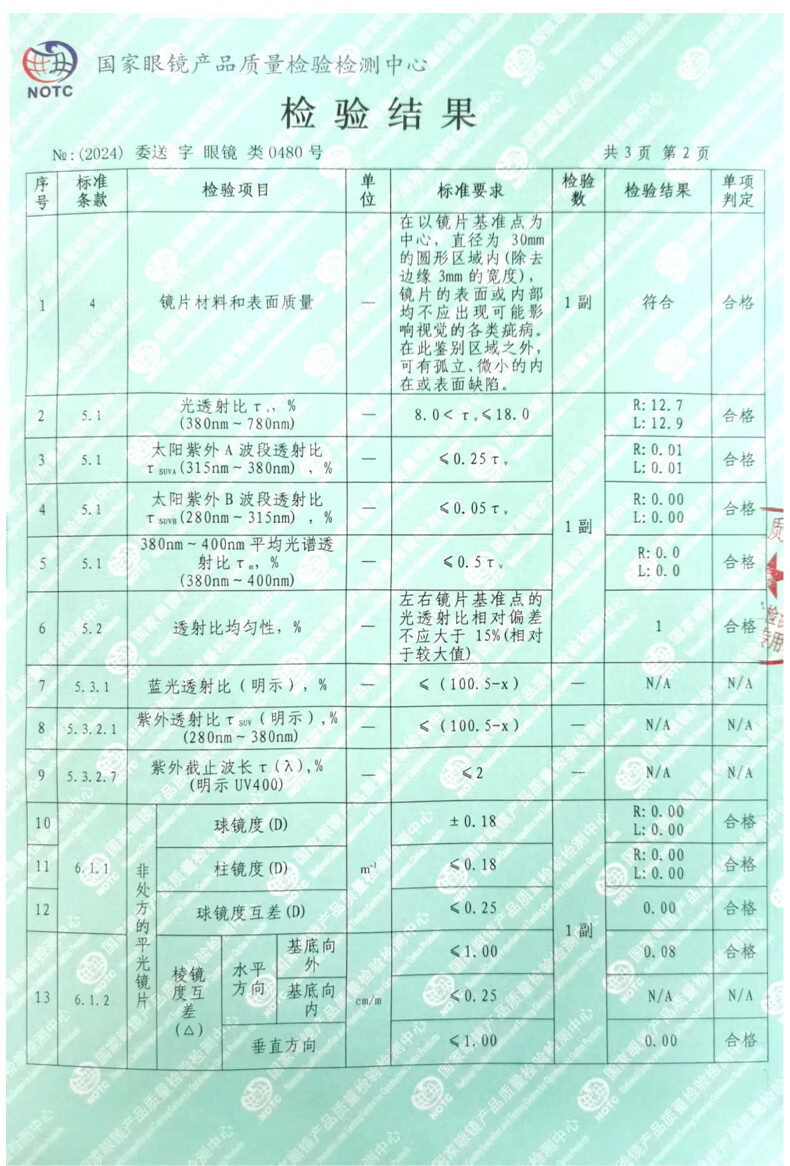 NOTC
国家眼镜产品质量检验检测中心
检验结果
№:(2024) 委送 字 眼镜 类0480号
共3页 第2页
序号 标准条款 检验项目 单位 标准要求 检验数 检验结果 单项判定
1 4 镜片材料和表面质量 — 在以镜片基准点为中心，直径为 30mm的圆形区域内(除去边缘3mm的宽度)，镜片的表面或内部均不应出现可能影响视觉的各类疵病。在此鉴别区域之外，可有孤立、微小的内在或表面缺陷。 1副 符合 合格
2 5.1 光透射比τv，%(380nm~780nm) — 8.0<τv≤18.0 1副 R:12.7 L:12.9 合格
3 5.1 太阳紫外A波段透射比τSUVA(315nm~380nm)，% — ≤0.25τv R:0.01 L:0.01 合格
4 5.1 太阳紫外B波段透射比τSUVB(280nm~315nm)，% — ≤0.05τv R:0.00 L:0.00 合格
5 5.1 380nm~400nm平均光谱透射比τ，%(380nm~400nm) — ≤0.5τv R:0.0 L:0.0 合格
6 5.2 透射比均匀性，% — 左右镜片基准点的光透射比相对偏差不应大于 15%(相对于较大值) 1 合格
7 5.3.1 蓝光透射比(明示)，% — ≤(100.5-x) — N/A N/A
8 5.3.2.1 紫外透射比τSUV(明示)，%(280nm~380nm) — ≤(100.5-x) — N/A N/A
9 5.3.2.7 紫外截止波长τ(λ)，%(明示UV400) — ≤2 — N/A N/A
10 6.1.1 非处方的平光镜片 球镜度(D) m⁻¹ ±0.18 1副 R:0.00 L:0.00 合格
11 柱镜度(D) ≤0.18 R:0.00 L:0.00 合格
12 球镜度互差(D) ≤0.25 0.00 合格
13 6.1.2 棱镜度互差(△) 水平方向 基底向外 cm/m ≤1.00 0.08 合格
基底向内 ≤0.25 N/A N/A
垂直方向 ≤1.00 0.00 合格